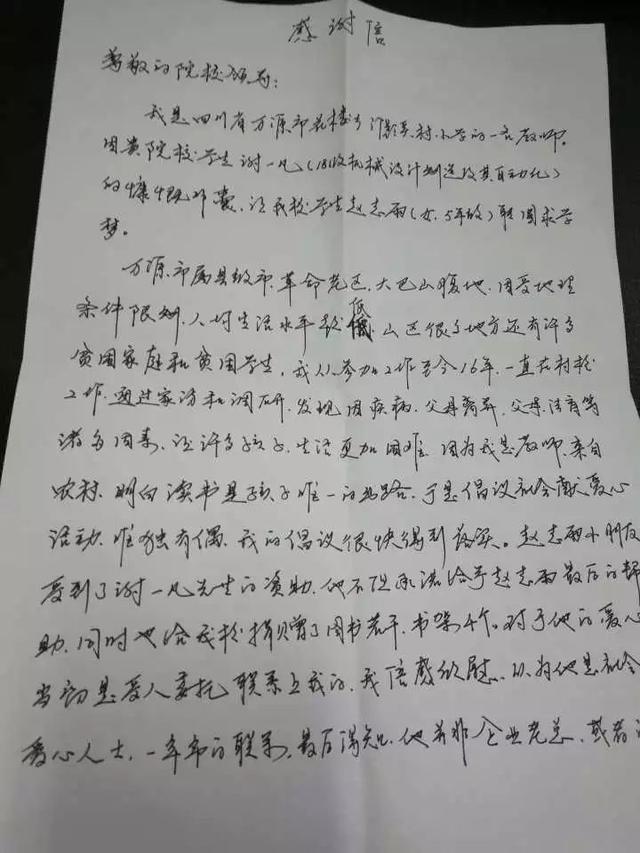 感谢信
尊敬的院校领导：
我是四川省万源市花楼乡 村小学的一名教师。
因贵院校学生谢一凡（18级机械设计制造及其自动化）
的慷慨解囊，让我校学生赵志雨（女，5年级）取圆求学
梦。
万源市属县级市，革命老区，大巴山腹地，因受地理
条件限制，人均生活水平较低，山区很多地方还有许多
贫困家庭和贫困学生，我从参加工作至今16年，一直在村校
工作，通过家访和调研，发现因疾病，父母离异，父母 等
诸多因素，让许多孩子，生活更加困难，因为我是教师，亲自
农村，明白读书是孩子唯一的出路，于是倡议社会献爱心
活动，唯独有偶，我的倡议很快得到落实。赵志雨小朋友
受到了谢一凡先生的资助，他不但承诺给予赵志雨最后的帮
助，同时他给我校捐赠了图书若干，书架4个。对于他的爱心
当初是受人委托联系上我的，我倍感欣慰，以为他是社会
爱心人士，一年 的联系，最后得知，他并非企业老总，或者